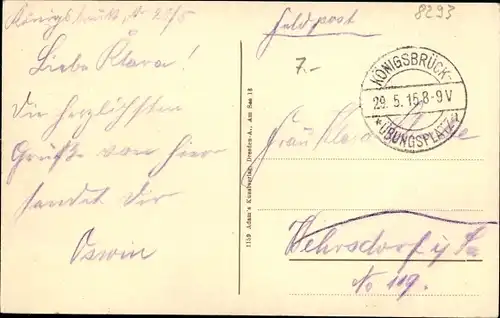 Königsbrück, d. 28/5
Liebe Klara!
Die herzlichsten
Grüße von hier
sendet dir
Oswin
1159 Adam's Kunstverlag, Dresden-A., Am See 18
Feldpost
8293
7.-
KÖNIGSBRÜCK-
29. 5. 15. 8-9 V
* ÜBUNGSPLATZ *
Frau Klara
Wehrsdorf i/Sa
No 119.